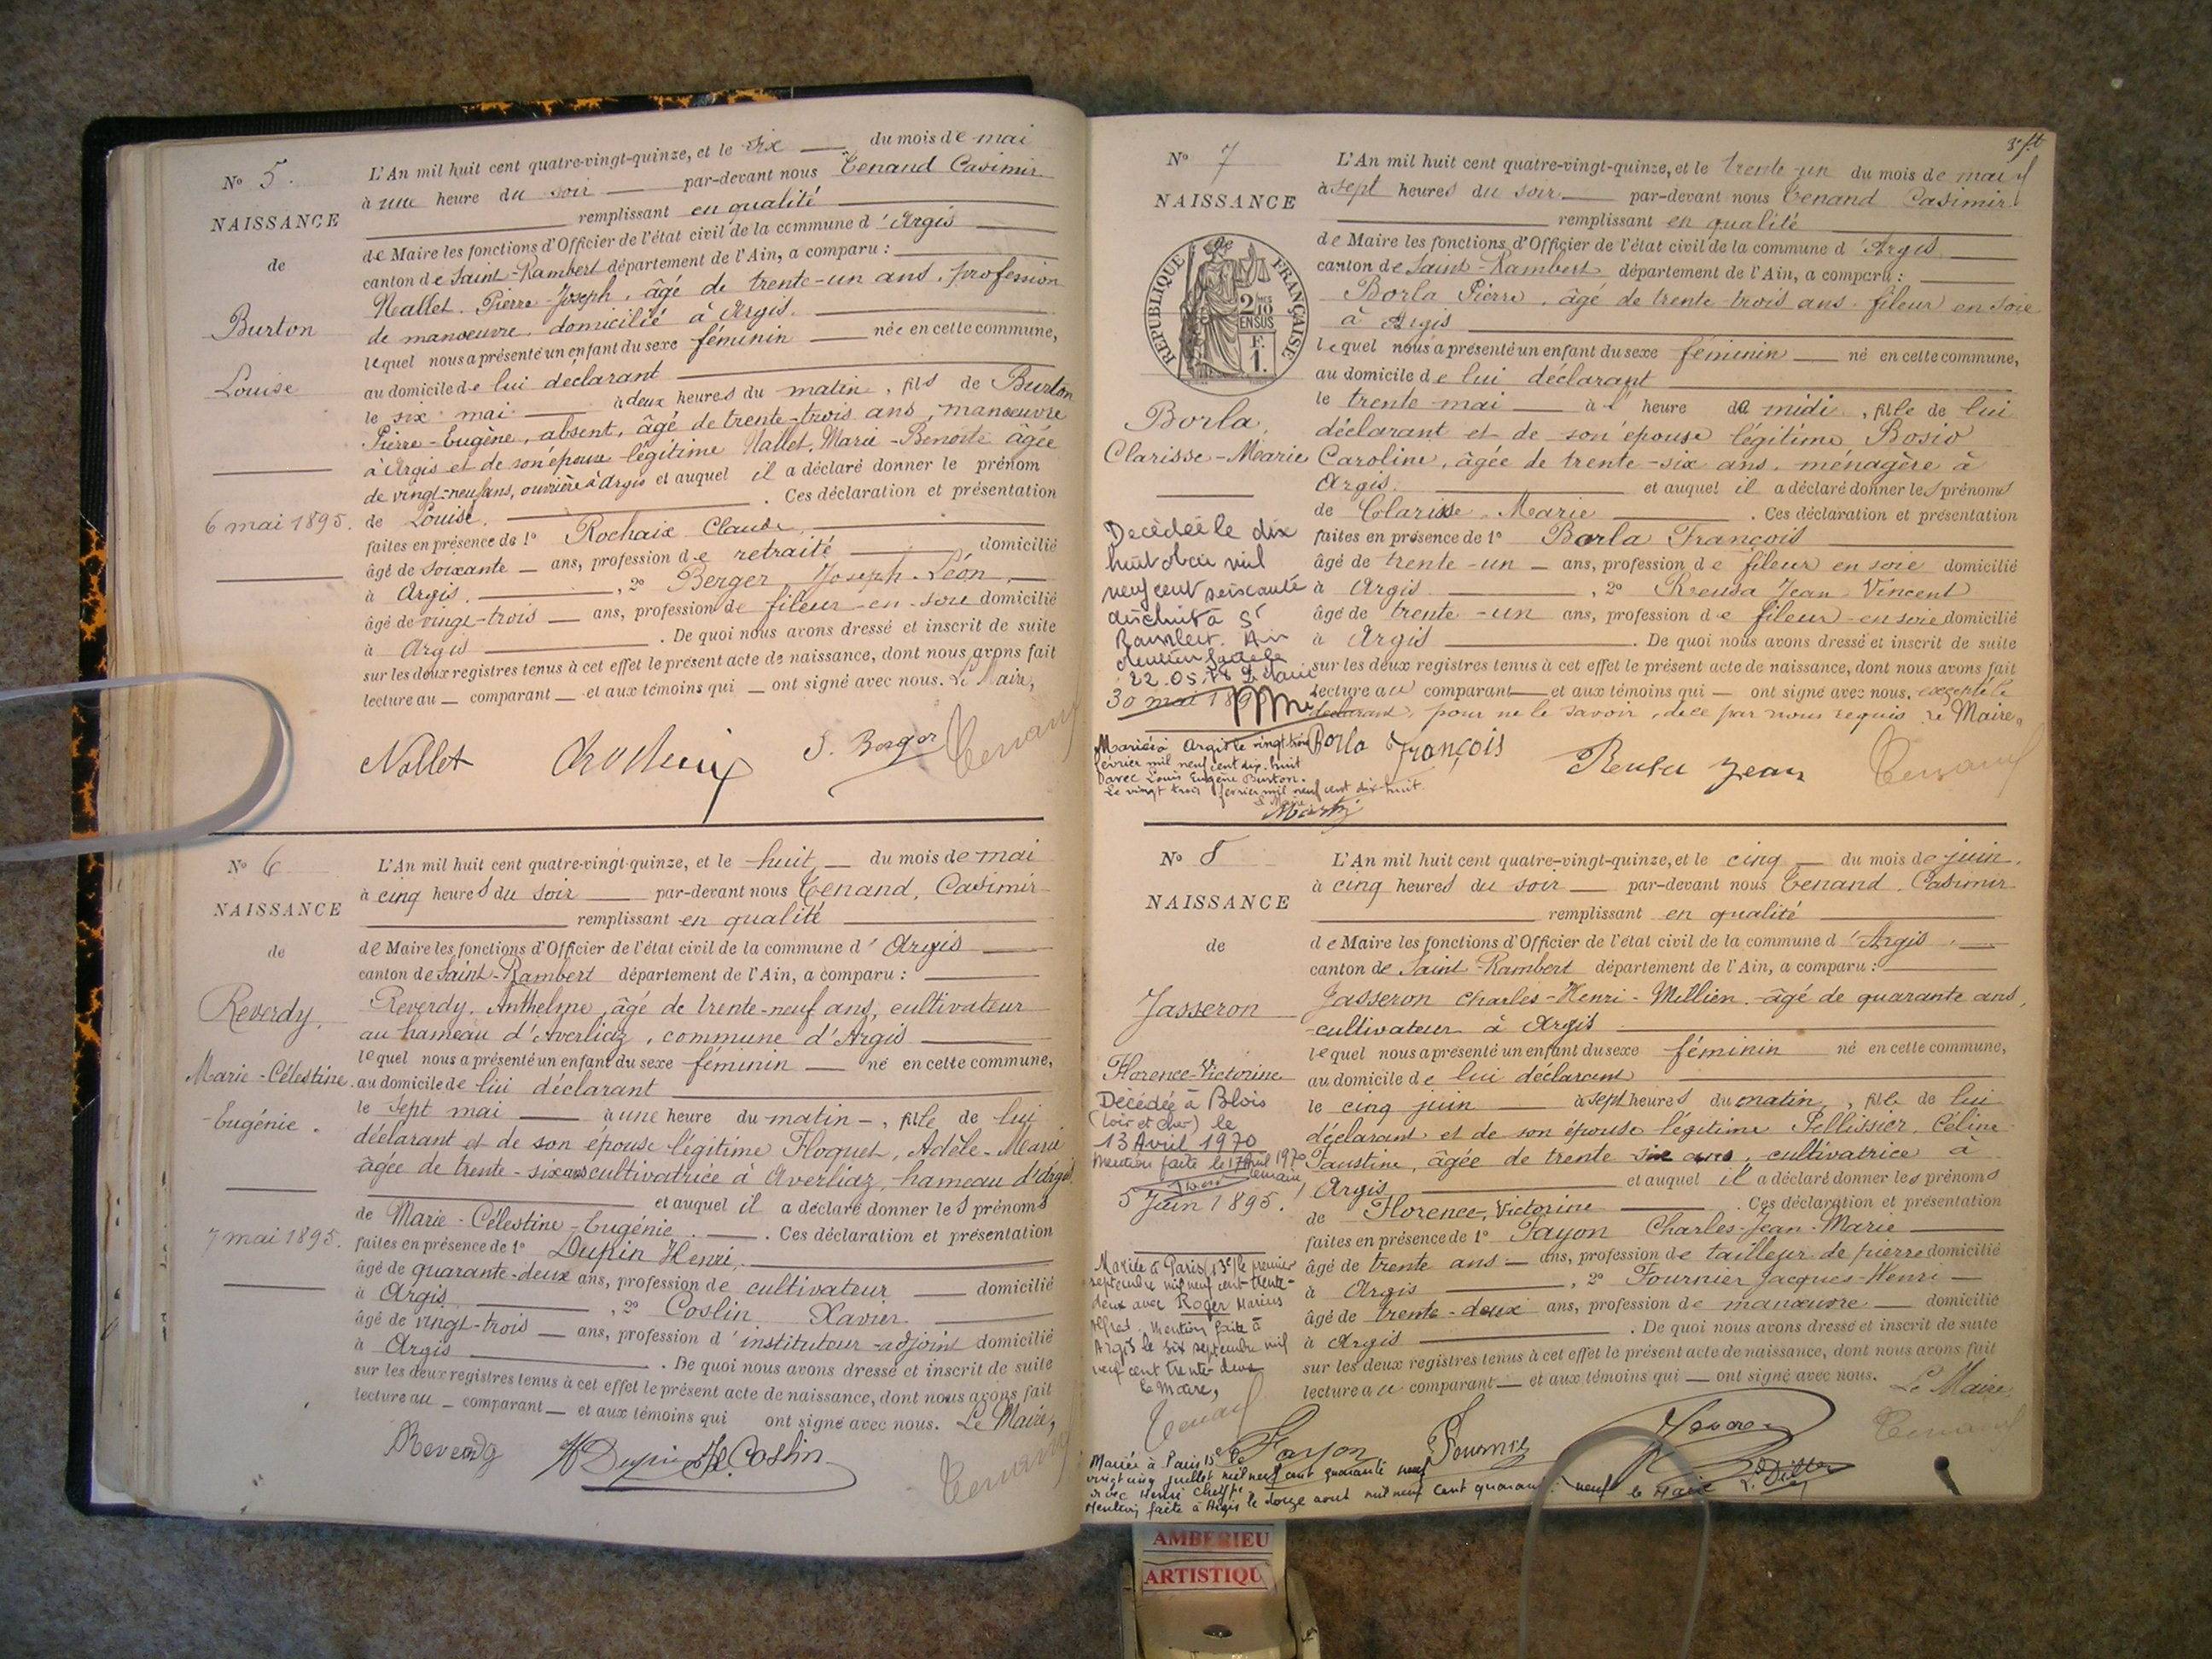 No 5.
NAISSANCE
de
Burton
Louise
6 mai 1895.
L'An mil huit cent quatre-vingt-quinze, et le six du mois de mai
à une heure du soir par-devant nous Tenand Casimir
remplissant en qualité
de Maire les fonctions d'Officier de l'état civil de la commune d'Argis
canton de Saint-Rambert département de l'Ain, a comparu :
Nallet Pierre-Joseph, âgé de trente-un ans, profession
de manoeuvre, domicilié à Argis.
lequel nous a présenté un enfant du sexe féminin née en cette commune,
au domicile de lui déclarant
le six mai à deux heures du matin, fils de Burton
Pierre-Eugène, absent, âgé de trente-trois ans, manoeuvre
à Argis et de son épouse légitime Nallet, Marie-Benoite âgée
de vingt-neuf ans, ouvrière à Argis et auquel il a déclaré donner le prénom
de Louise. Ces déclaration et présentation
faites en présence de 1o Rochaix Claude,
âgé de soixante ans, profession de retraité domicilié
à Argis. , 2o Berger, Joseph-Léon,
âgé de vingt-trois ans, profession de fileur-en-soie domicilié
à Argis . De quoi nous avons dressé et inscrit de suite
sur les deux registres tenus à cet effet le présent acte de naissance, dont nous avons fait
lecture au comparant et aux témoins qui ont signé avec nous. Le Maire,
Nallet J. Berger Tenand
No 6
NAISSANCE
de
Reverdy,
Marie-Célestine
-Eugénie.
7 mai 1895.
L'An mil huit cent quatre-vingt-quinze, et le huit du mois de mai
à cinq heures du soir par-devant nous Tenand, Casimir
remplissant en qualité
de Maire les fonctions d'Officier de l'état civil de la commune d'Argis
canton de Saint-Rambert département de l'Ain, a comparu :
Reverdy, Anthelme, âgé de trente-neuf ans, cultivateur
au hameau d'Averliaz, commune d'Argis
lequel nous a présenté un enfant du sexe féminin né en cette commune,
au domicile de lui déclarant
le sept mai à une heure du matin, fille de lui
déclarant et de son épouse légitime Floquet, Adèle-Marie
âgée de trente-six ans cultivatrice à Averliaz, hameau d'Argis
et auquel il a déclaré donner les prénoms
de Marie-Célestine-Eugénie. Ces déclaration et présentation
faites en présence de 1o Dupin Henri,
âgé de quarante-deux ans, profession de cultivateur domicilié
à Argis , 2o Coslin Xavier
âgé de vingt-trois ans, profession d'instituteur-adjoint domicilié
à Argis . De quoi nous avons dressé et inscrit de suite
sur les deux registres tenus à cet effet le présent acte de naissance, dont nous avons fait
lecture au comparant et aux témoins qui ont signé avec nous. Le Maire,
Reverdy H Dupin Coslin Tenand
3e ft
No 7
NAISSANCE
RÉPUBLIQUE FRANÇAISE
2/10 EN SUS
F. 1.
Borla,
Clarisse-Marie
Décédée le dix
huit mil
neuf cent soixante
dix huit à St
Rambert. Ain
22.05.78 Le Maire
30 mai 189
Mariée à Argis le vingt trois
février mil neuf cent dix-huit
avec Louis Eugène Burton.
Le vingt trois février mil neuf cent dix-huit
Le Maire
L'An mil huit cent quatre-vingt-quinze, et le trente-un du mois de mai
à sept heures du soir par-devant nous Tenand Casimir
remplissant en qualité
de Maire les fonctions d'Officier de l'état civil de la commune d'Argis
canton de Saint-Rambert département de l'Ain, a comparu :
Borla Pierre, âgé de trente-trois ans, fileur en soie
à Argis
lequel nous a présenté un enfant du sexe féminin né en cette commune,
au domicile de lui déclarant
le trente mai à l'heure de midi, fille de lui
déclarant et de son épouse légitime Bosio
Caroline, âgée de trente-six ans, ménagère à
Argis. et auquel il a déclaré donner les prénoms
de Clarisse-Marie . Ces déclaration et présentation
faites en présence de 1o Borla François
âgé de trente-un ans, profession de fileur en soie domicilié
à Argis , 2o Reusa Jean Vincent
âgé de trente-un ans, profession de fileur-en-soie domicilié
à Argis . De quoi nous avons dressé et inscrit de suite
sur les deux registres tenus à cet effet le présent acte de naissance, dont nous avons fait
lecture au comparant et aux témoins qui ont signé avec nous, excepté le
déclarant, pour ne le savoir, de ce par nous requis. Le Maire,
Borla François Reusa Jean Tenand
No 8
NAISSANCE
de
Jasseron
Florence-Victorine
Décédée à Blois
(Loir et Cher) le
13 Avril 1970
Mention faite le 17 Avril 1970
5 Juin 1895.
Mariée à Paris (13e) le premier
septembre mil neuf cent trente-
deux avec Roger Marius
Alfred. Mention faite à
Argis le six septembre mil
neuf cent trente-deux
Le Maire,
Tenand
L'An mil huit cent quatre-vingt-quinze, et le cinq du mois de juin,
à cinq heures du soir par-devant nous Tenand, Casimir
remplissant en qualité
de Maire les fonctions d'Officier de l'état civil de la commune d'Argis
canton de Saint-Rambert département de l'Ain, a comparu :
Jasseron Charles-Henri-Millien, âgé de quarante ans,
cultivateur à Argis
lequel nous a présenté un enfant du sexe féminin né en cette commune,
au domicile de lui déclarant
le cinq juin à sept heures du matin, fille de lui
déclarant et de son épouse légitime Pellissier, Céline
Faustine, âgée de trente six ans, cultivatrice à
Argis et auquel il a déclaré donner les prénoms
de Florence-Victorine . Ces déclaration et présentation
faites en présence de 1o Fayon Charles-Jean-Marie
âgé de trente ans ans, profession de tailleur de pierre domicilié
à Argis , 2o Fournier Jacques-Henri
âgé de trente-deux ans, profession de manoeuvre domicilié
à Argis . De quoi nous avons dressé et inscrit de suite
sur les deux registres tenus à cet effet le présent acte de naissance, dont nous avons fait
lecture au comparant et aux témoins qui ont signé avec nous. Le Maire,
Fayon Fournier Tenand
Mariée à Paris 15e le
vingt cinq juillet mil neuf cent quarante neuf
avec Henri
Mention faite à Argis le douze août mil neuf cent quarante neuf le Maire
AMBERIEU
ARTISTIQU